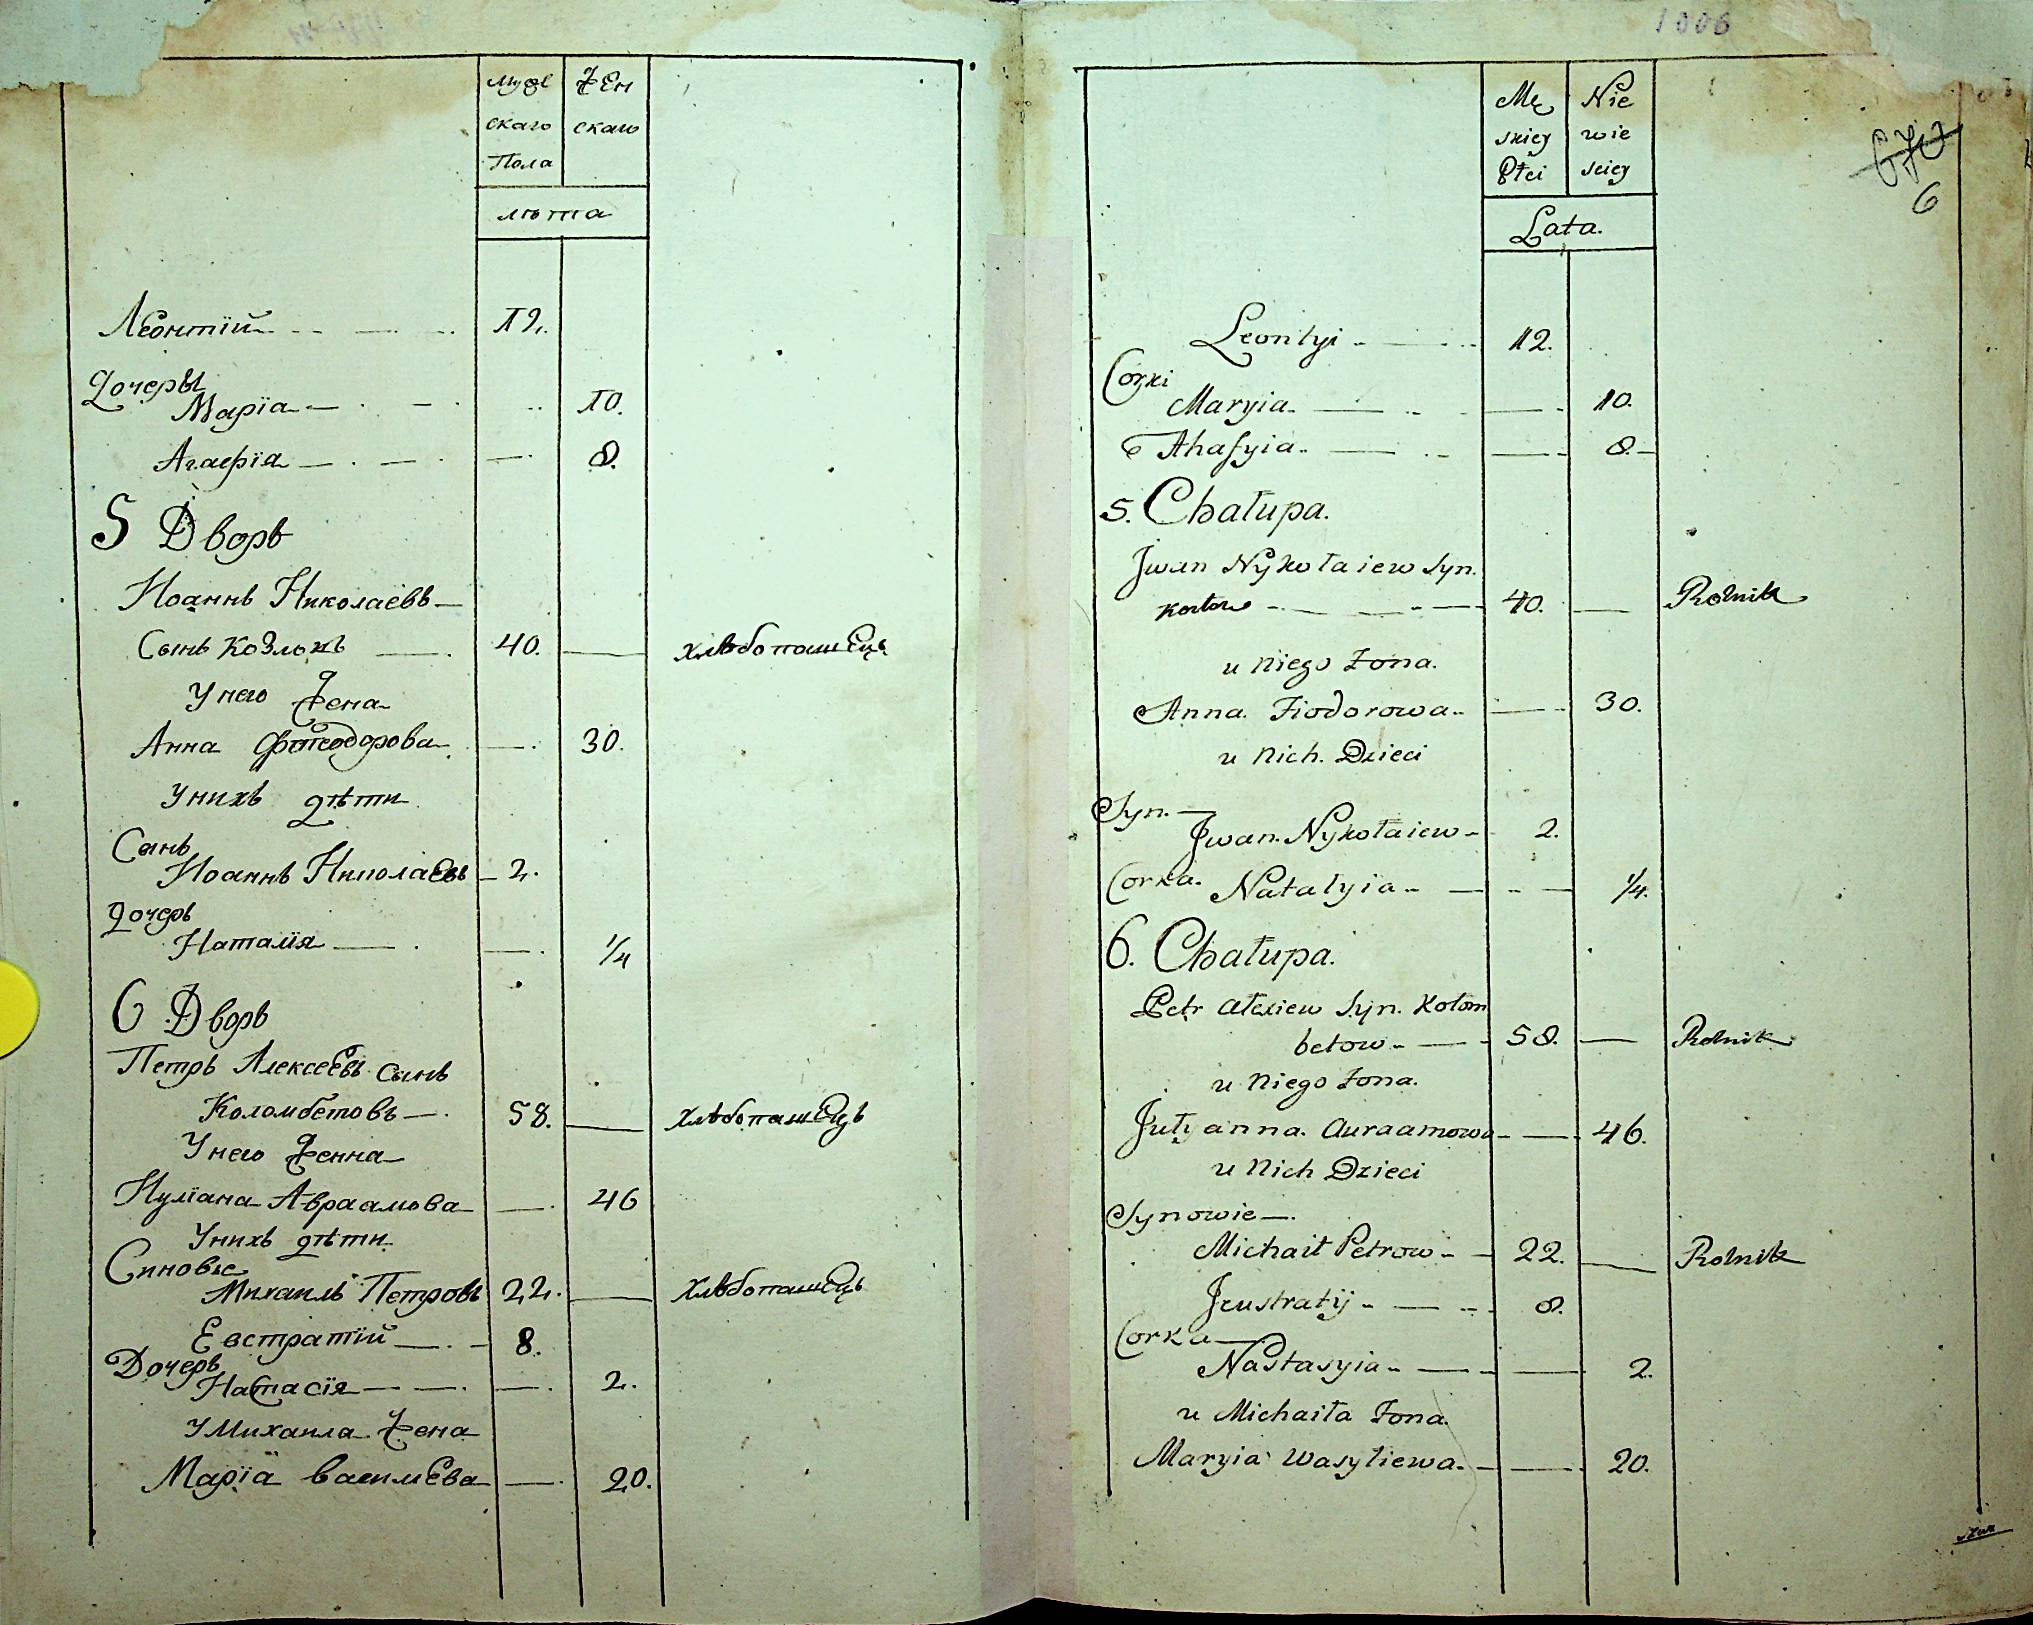 Мужескаго Пола
Женскаго
лѣта
Леонтїй 12.
Дочеры
Марїа 10.
Агафїя 8.
5 Дворъ
Иоаннъ Николаевъ
Сынъ Козлокъ 40. хлѣбопашецъ
У него жена
Анна Фтеодорова 30.
У нихъ дѣти
Сынъ
Иоаннъ Николаевъ 2.
Дочерь
Наталїя 1/4
6 Дворъ
Петръ Алексеевъ сынъ
Коломбетовъ 58. хлѣбопашецъ
У него женна
Иулїана Авраамова 46
У нихъ дѣти
Синовье
Михаилъ Петровъ 22. хлѣбопашецъ
Евстратїй 8.
Дочерь
Настасїя 2.
У Михаила жена
Марїа василева 20.
1006
6
Męskiey Płci
Niewieściey
Lata.
Leontyi 12.
Corki
Maryia 10.
Ahafyia 8.
5. Chałupa.
Jwan Nykołaiew Syn.
40. Rolnik
u Niego Zona.
Anna Fiodorowa 30.
u Nich Dzieci
Syn.
Jwan Nykołaiew 2.
Corka. Natalyia 1/4.
6. Chałupa.
Petr Alexiew Syn. Kołom
betow 58. Rolnik
u Niego Zona.
Julyanna Auraamowa 46.
u Nich Dzieci
Synowie
Michaił Petrow 22. Rolnik
Jeustratij 8.
Corka
Nastasyia 2.
u Michaiła Zona.
Maryia Wasyliewa 20.